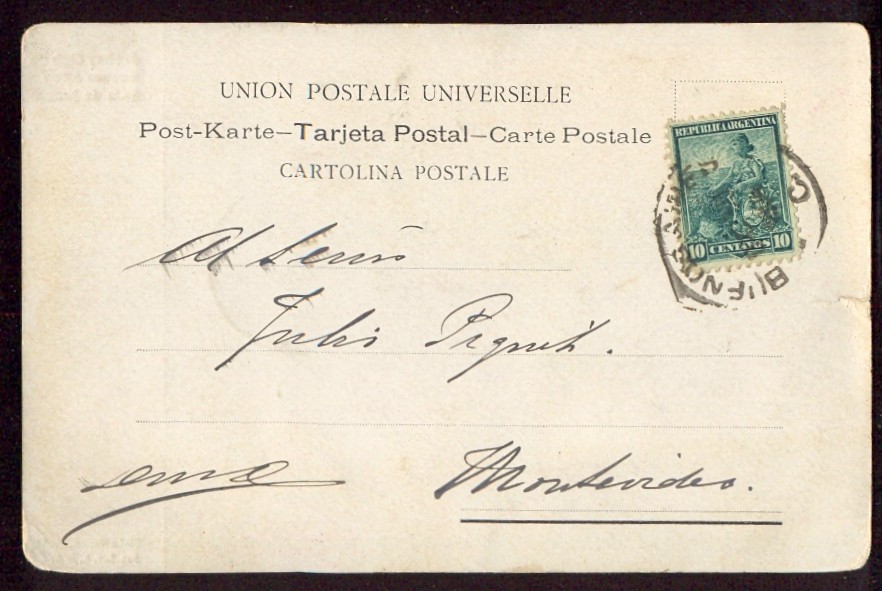 UNION POSTALE UNIVERSELLE
Post-Karte–Tarjeta Postal–Carte Postale
CARTOLINA POSTALE
REPUBLICA ARGENTINA
10 CENTAVOS 10
BUENOS AIRES
Al Señor
Julio
Montevideo.